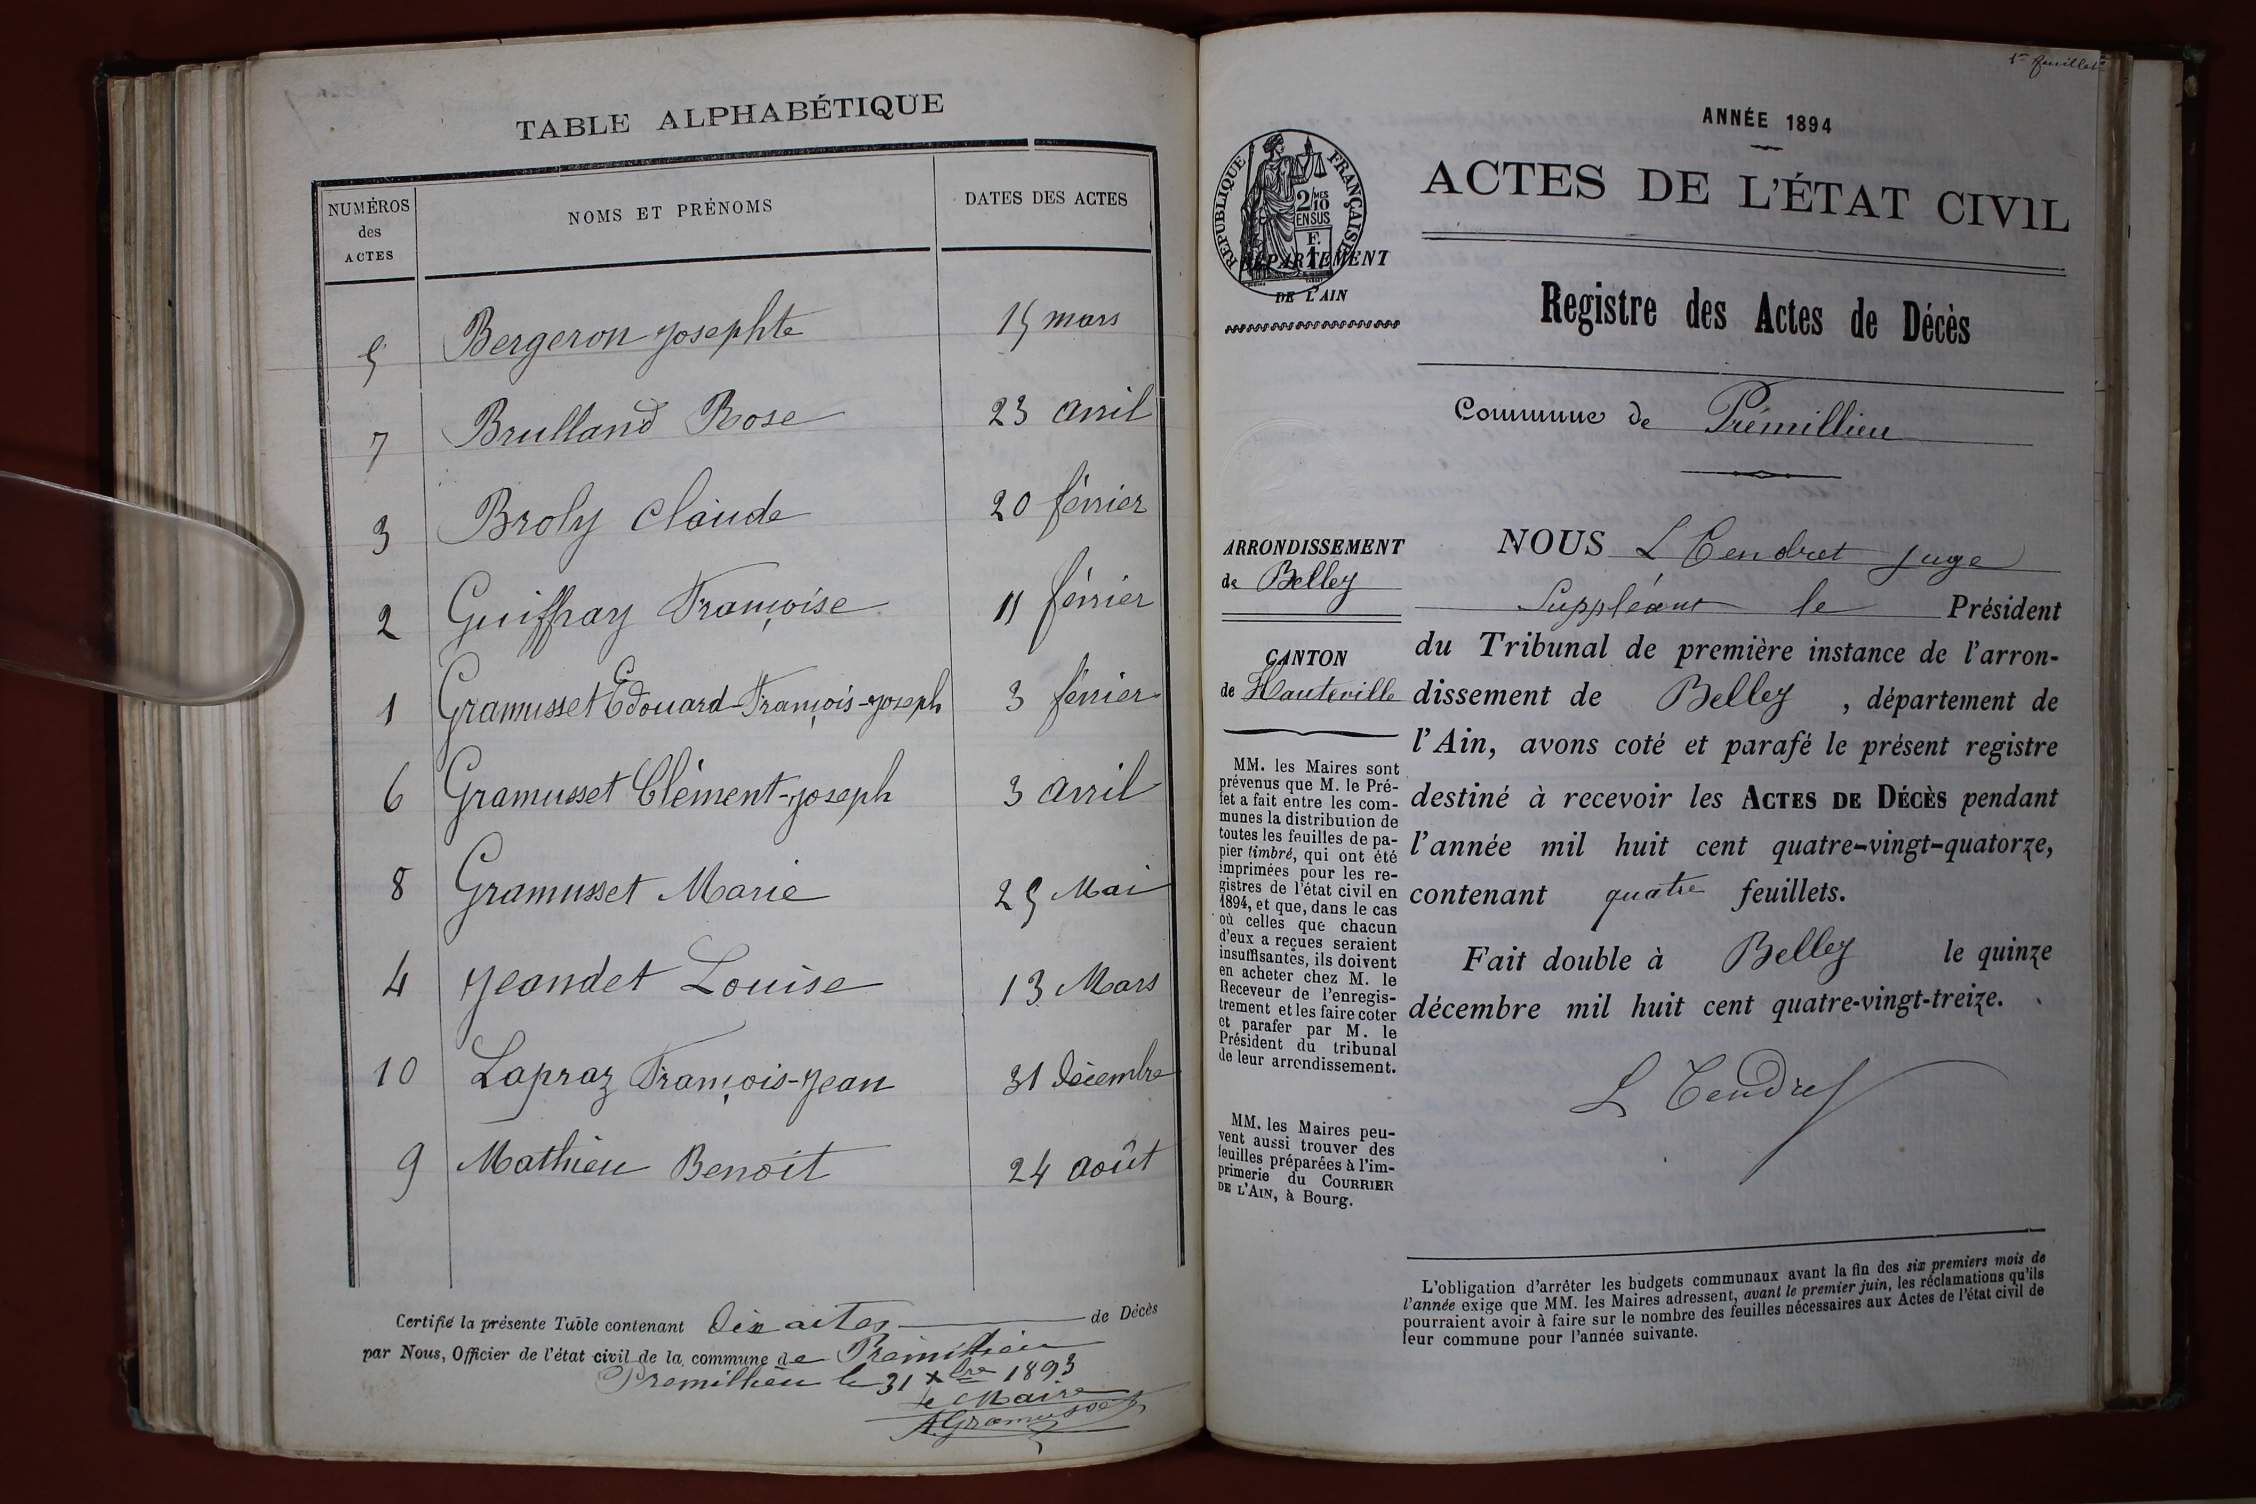 TABLE ALPHABÉTIQUE
NUMÉROS des ACTES NOMS ET PRÉNOMS DATES DES ACTES
5 Bergeron Josephte 15 mars
7 Brulland Rose 23 avril
3 Broly Claude 20 février
2 Guiffray Françoise 11 février
1 Gramusset Edouard-François-Joseph 3 février
6 Gramusset Clément-Joseph 3 avril
8 Gramusset Marie 25 Mai
4 Jeandet Louise 13 Mars
10 Lapraz François-Jean 31 décembre
9 Mathieu Benoit 24 août
Certifié la présente Table contenant dix actes de Décès
par Nous, Officier de l'état civil de la commune de Prémillieu
Premillieu le 31 Xbre 1893
Le Maire
A. Gramusset
1er feuillet
ANNÉE 1894
ACTES DE L'ÉTAT CIVIL
RÉPUBLIQUE FRANÇAISE
2/10 MES
EN SUS
F.
1
DÉPARTEMENT
DE L'AIN
Registre des Actes de Décès
Commune de Prémillieu
ARRONDISSEMENT
de Belley
CANTON
de Hauteville
MM. les Maires sont
prévenus que M. le Pré-
fet a fait entre les com-
munes la distribution de
toutes les feuilles de pa-
pier timbré, qui ont été
imprimées pour les re-
gistres de l'état civil en
1894, et que, dans le cas
où celles que chacun
d'eux a reçues seraient
insuffisantes, ils doivent
en acheter chez M. le
Receveur de l'enregis-
trement et les faire coter
et parafer par M. le
Président du tribunal
de leur arrondissement.
MM. les Maires peu-
vent aussi trouver des
feuilles préparées à l'im-
primerie du COURRIER
DE L'AIN, à Bourg.
NOUS L Tendret juge
Suppléant le Président
du Tribunal de première instance de l'arron-
dissement de Belley, département de
l'Ain, avons coté et parafé le présent registre
destiné à recevoir les ACTES DE DÉCÈS pendant
l'année mil huit cent quatre-vingt-quatorze,
contenant quatre feuillets.
Fait double à Belley le quinze
décembre mil huit cent quatre-vingt-treize.
L Tendret
L'obligation d'arrêter les budgets communaux avant la fin des six premiers mois de
l'année exige que MM. les Maires adressent, avant le premier juin, les réclamations qu'ils
pourraient avoir à faire sur le nombre des feuilles nécessaires aux Actes de l'état civil de
leur commune pour l'année suivante.